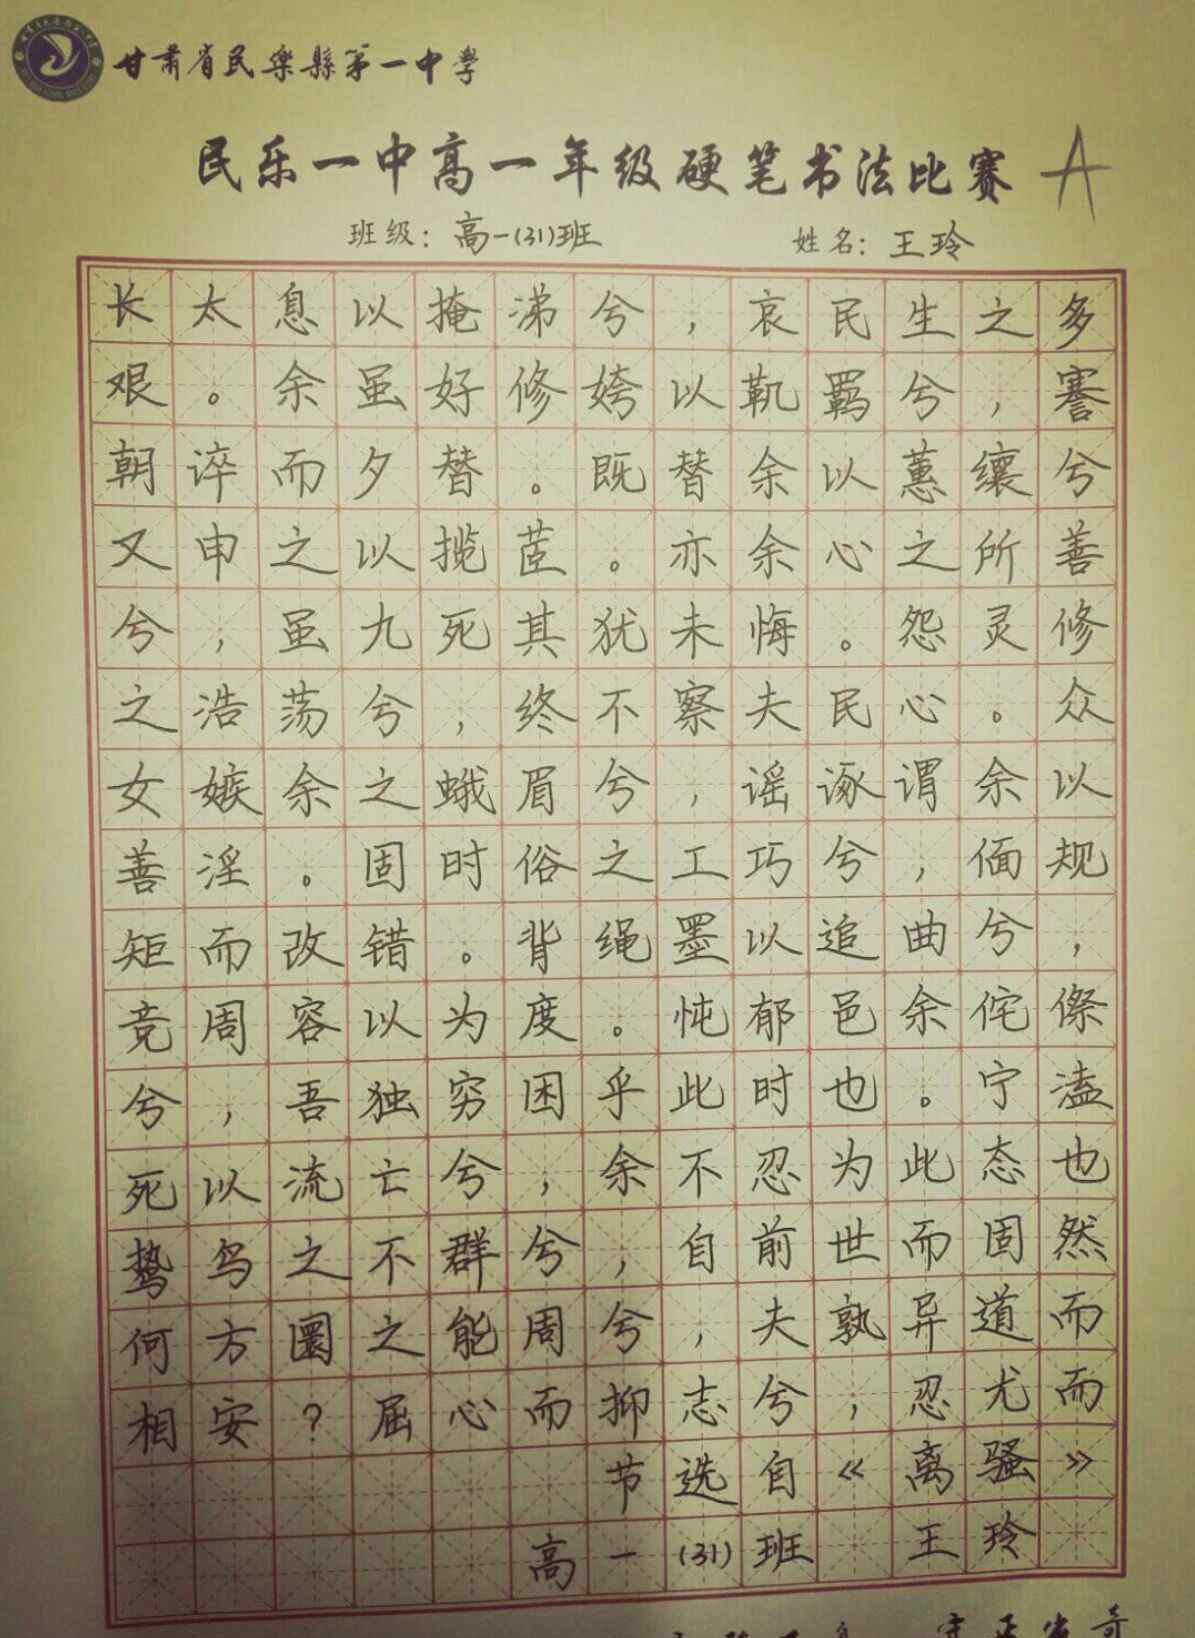 甘肃省民樂縣第一中學
民乐一中高一年级硬笔书法比赛 A
班级：高一(31)班 姓名：王玲
长太息以掩涕兮，哀民生之多
艰。余虽好修姱以鞿羁兮，謇
朝谇而夕替。既替余以蕙纕兮
又申之以揽茝。亦余心之所善
兮，虽九死其犹未悔。怨灵修
之浩荡兮，终不察夫民心。众
女嫉余之蛾眉兮，谣诼谓余以
善淫。固时俗之工巧兮，偭规
矩而改错。背绳墨以追曲兮，
竞周容以为度。忳郁邑余侘傺
兮，吾独穷困乎此时也。宁溘
死以流亡兮；余不忍为此态也
鸷鸟之不群兮，自前世而固然
何方圜之能周兮，夫孰异道而
相安？屈心而抑志兮，忍尤而
节选自《离骚》
高一(31)班 王玲